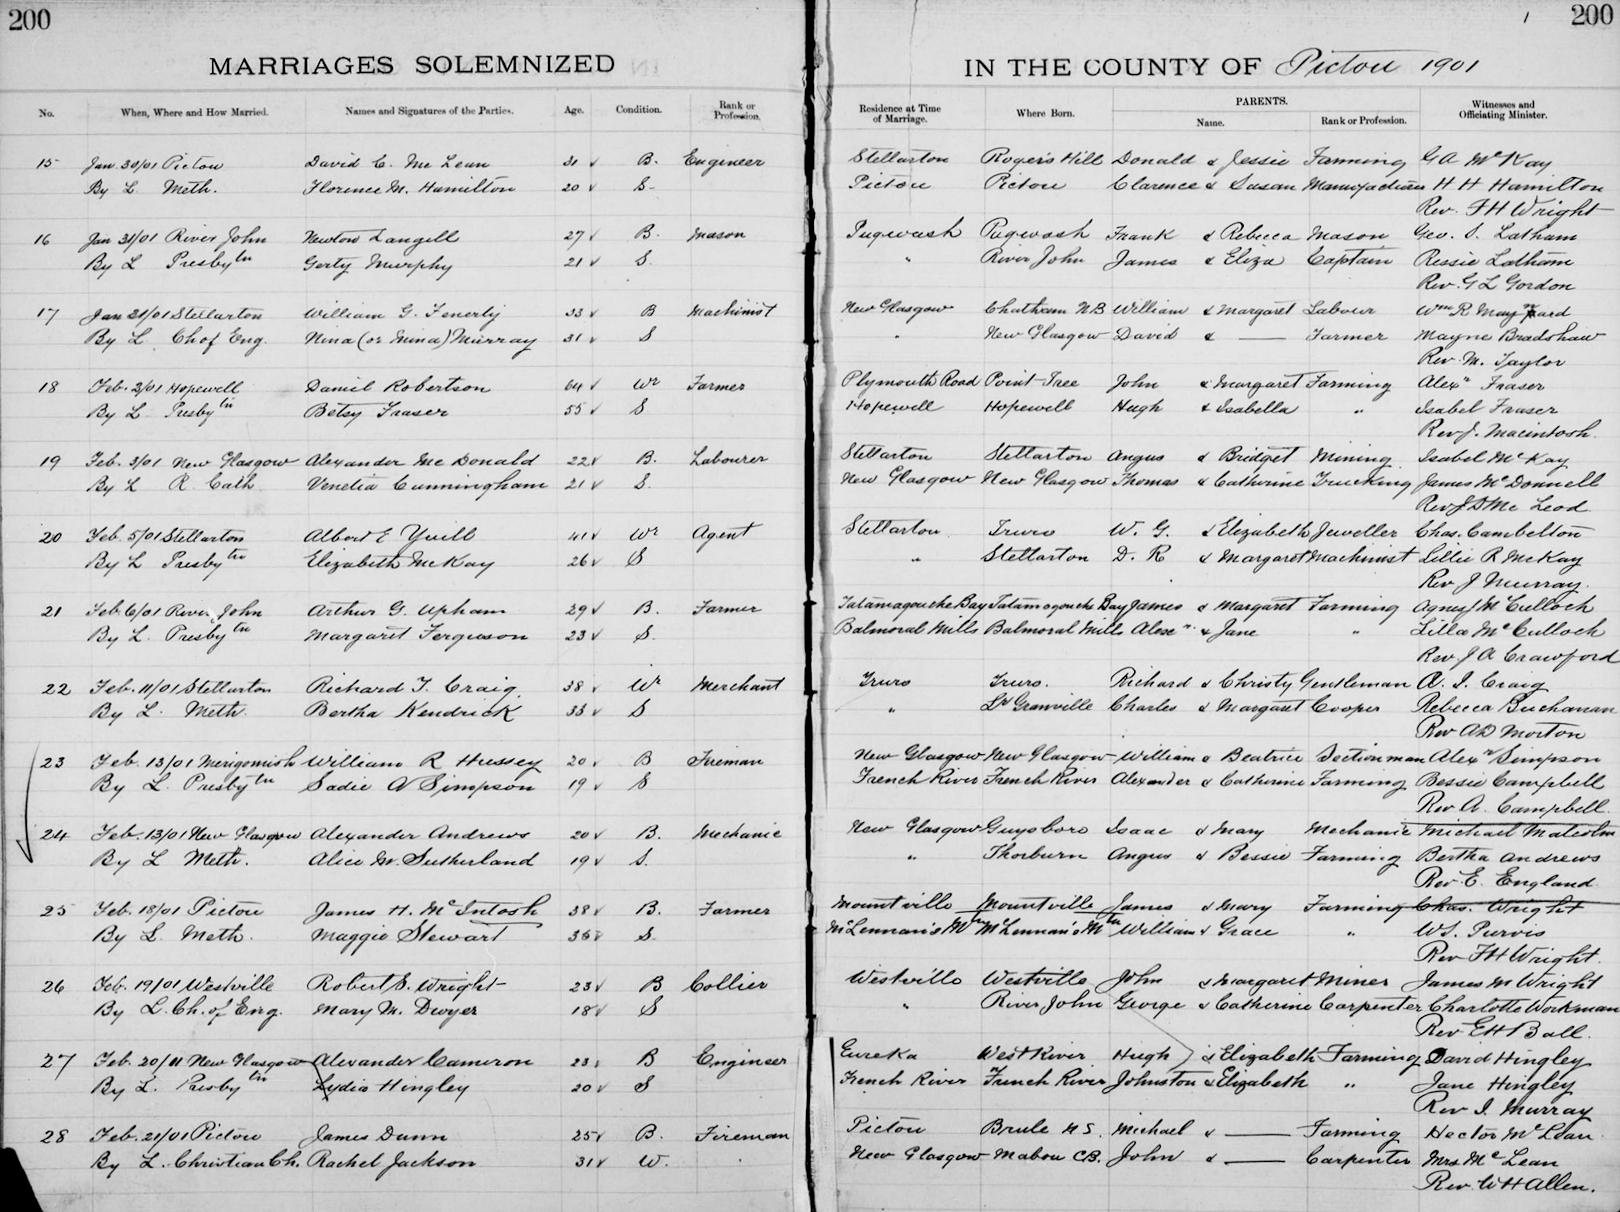 200
200
MARRIAGES SOLEMNIZED IN THE COUNTY OF Pictou 1901
No. When, Where and How Married. Names and Signatures of the Parties. Age. Condition. Rank or Profession. Residence at Time of Marriage. Where Born. PARENTS. Name. Rank or Profession. Witnesses and Officiating Minister.
15 Jan. 30/01 Pictou David C. Mc Lean 31 B. Engineer Stellarton Rogers Hill Donald & Jessie Farming G A McKay
By L Meth. Florence M. Hamilton 20 S. Pictou Pictou Clarence & Susan Manufacturer H H Hamilton
Rev. F H Wright
16 Jan 31/01 River John Newton Langill 27 B. Mason Pugwash Pugwash Frank & Rebecca Mason Geo. S. Latham
By L Presbytn Gerty Murphy 21 S. " River John James & Eliza Captain Ressie Latham
Rev. G L Gordon
17 Jan 31/01 Stellarton William G. Fenerty 33 B Machinist New Glasgow Chatham N B William & Margaret Labour Wm R
By L Ch of Eng. Nina (or Mina) Murray 31 S " New Glasgow David & — Farmer Mayne Bradshaw
Rev. M. Taylor
18 Feb. 2/01 Hopewell Daniel Robertson 64 Wr Farmer Plymouth Road Point Tree John & Margaret Farming Alexr Fraser
By L Presbytn Betsy Fraser 55 S Hopewell Hopewell Hugh & Isabella " Isabel Fraser
Rev J. Macintosh.
19 Feb. 3/01 New Glasgow Alexander Mc Donald 22 B. Labourer Stellarton Stellarton Angus & Bridget Mining Isabel McKay
By L R. Cath Venetia Cunningham 21 S. New Glasgow New Glasgow Thomas & Catherine Trucking James McDonnell
Rev J D Mc Leod
20 Feb. 5/01 Stellarton Albert E Yuill 41 Wr Agent Stellarton Truro W. G. & Elizabeth Jeweller Chas. Cambelton
By L Presbytn Elizabeth McKay 26 S " Stellarton D. R & Margaret Machinist Lillie R McKay
Rev J Murray.
21 Feb. 6/01 River John Arthur G. Upham 29 B. Farmer Tatamagouche Bay Tatamagouche Bay James & Margaret Farming Agnes J McCulloch
By L. Presbytn Margaret Ferguson 23 S. Balmoral Mills Balmoral Mills Alexr & Jane " Lilla McCulloch
Rev. J A Crawford
22 Feb. 11/01 Stellarton Richard T. Craig. 38 Wr Merchant Truro Truro. Richard & Christy Gentleman A. I. Craig
By L. Meth. Bertha Kendrick 33 S " Lr Granville Charles & Margaret Cooper Rebecca Buchanan
Rev A D Morton
23 Feb. 13/01 Merigomish William R Hussey 20 B Fireman New Glasgow New Glasgow William & Beatrice Sectionman Alexr Simpson
By L. Presbytn Sadie A Simpson 19 S French River French River Alexander & Catherine Farming Bessie Campbell
Rev A. Campbell
24 Feb. 13/01 New Glasgow Alexander Andrews 20 B. Mechanic New Glasgow Guysboro Isaac & Mary Mechanic Michael Malcolm
By L Meth. Alice M. Sutherland 19 S. " Thorburn Angus & Bessie Farming Bertha Andrews
Rev. E. England
25 Feb. 18/01 Pictou James H. McIntosh 38 B. Farmer Mountville Mountville James & Mary Farming Chas. Wright
By L. Meth. Maggie Stewart 36 S. McLennan's Mtn McLennan's Mtn William & Grace " W S. Purvis
Rev F H Wright.
26 Feb. 19/01 Westville Robert S. Wright 23 B Collier Westville Westville John & Margaret Miner James M Wright
By L. Ch. of Eng. Mary M. Dwyer 18 S " River John George & Catherine Carpenter Charlotte Workman
Rev E H Ball.
27 Feb. 20/01 New Glasgow Alexander Cameron 23 B Engineer Eureka West River Hugh & Elizabeth Farming David Hingley
By L. Presbytn Lydia Hingley 20 S French River French River Johnston & Elizabeth " Jane Hingley
Rev J. Murray
28 Feb. 21/01 Pictou James Dunn 25 B. Fireman Pictou Brule N S. Michael & — Farming Hector McLean
By L. Christian Ch. Rachel Jackson 31 W. New Glasgow Mabou C B. John & — Carpenter Mrs McLean
Rev. W H Allen.